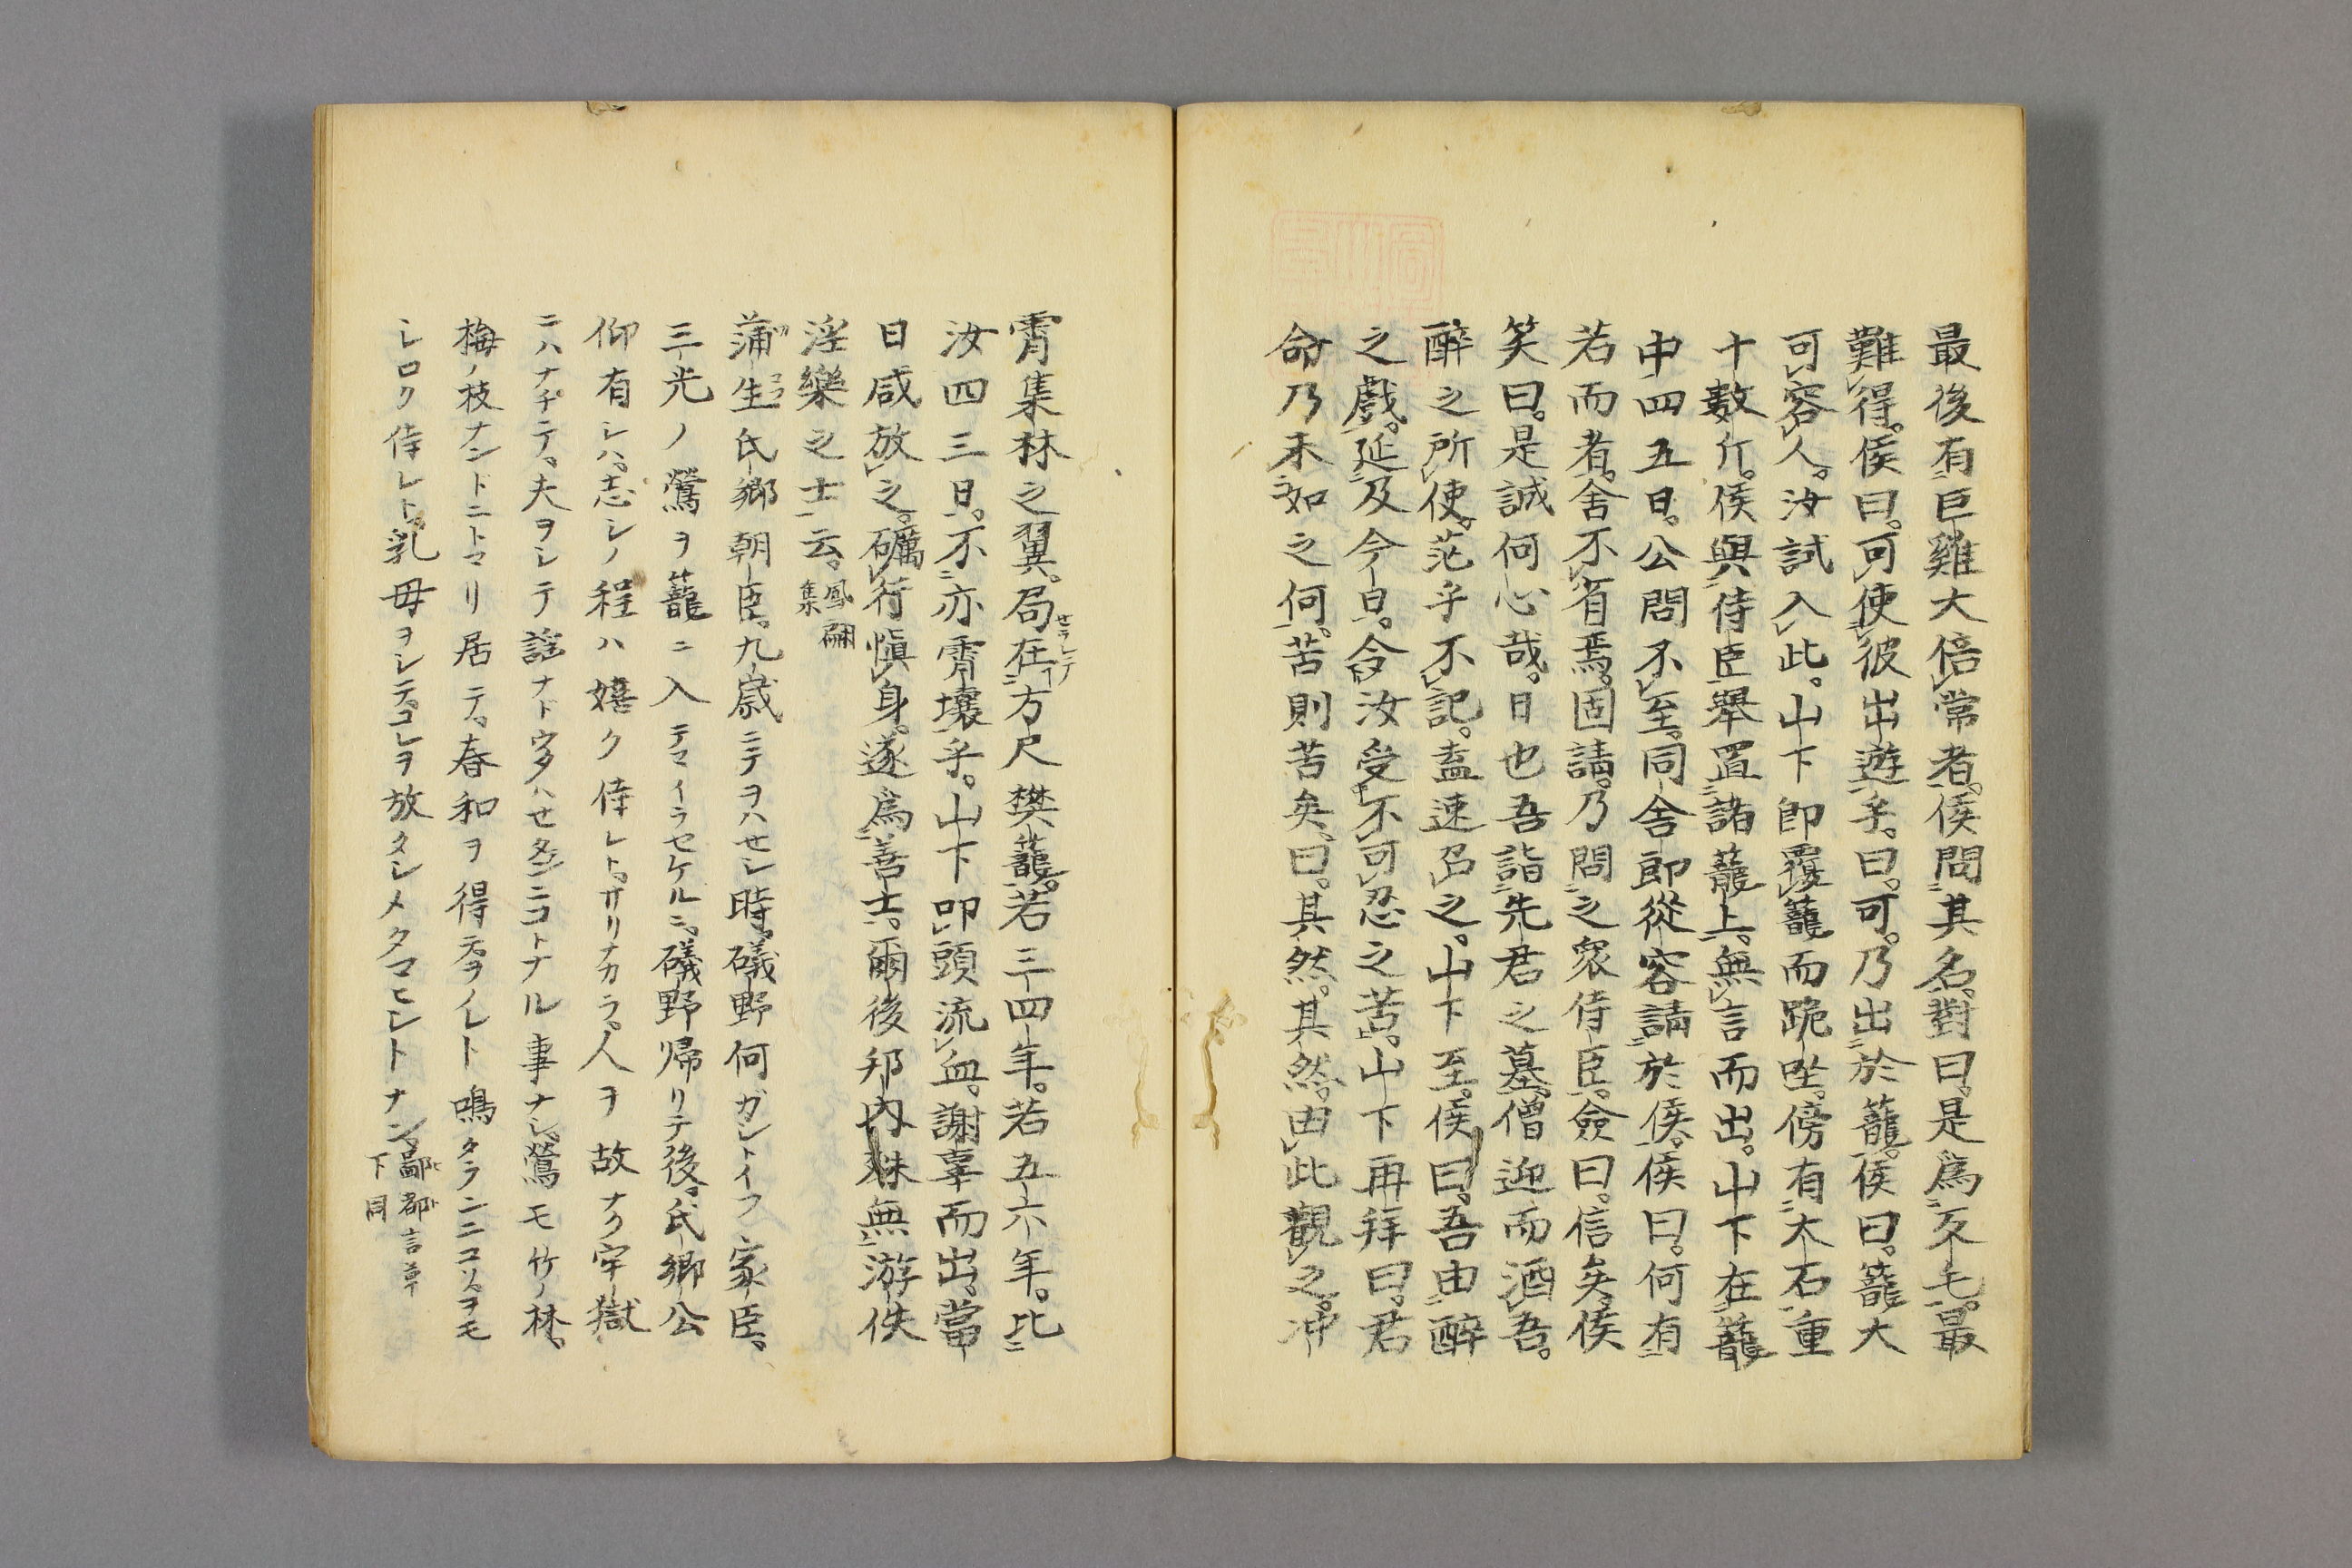 最後有巨雞大倍常者。侯問其名。對曰。是爲反毛。最
難得。侯曰。可使彼出遊乎。曰。可。乃出於籠。侯曰。籠大
可容人。汝試入此。山下即覆籠而跪坐。傍有大石重
十數斤。侯與侍臣舉置諸籠上。無言而出。山下在籠
中四五日。公問不至。同舍郎從容請於侯。侯曰。何有
若而者。舍不省焉。固請。乃問之衆侍臣。僉曰。信矣。侯
笑曰。是誠何心哉。日也吾詣先君之墓。僧迎而酒吾。
醉之所使。茫乎不記。盍速召之。山下至。侯曰。吾由醉
之戲。延及今日。令汝受不可忍之苦。山下再拜曰。君
命乃未如之何。苦則苦矣。曰。其然。其然。由此觀之。冲
霄集林之翼。局在方尺樊籠。若三四年。若五六年。比
汝四三日。不亦霄壤乎。山下叩頭流血。謝辜而出。當
日咸放之。礪行愼身。遂爲善士。爾後邦内殊無游佚
淫樂之士云。鳳翩集
蒲生氏郷朝臣。九歳ニテヲハセシ時。礒野何ガシトイフ家臣。
三光ノ鶯ヲ籠ニ入テマイラセケルニ。礒野帰リテ後。氏郷公
仰有シハ。志シノ程ハ嬉ク侍レト。サリナカラ。人ヲ故ナク牢獄
ニハナチテ。夫ヲシテ謡ナドウタハセタシニコトナル事ナシ。鶯モ竹ノ林。
梅ノ枝ナントニトマリ居テ。春和ヲ得テヲノレト鳴タランニコソ。ヲモ
シロク侍レト。乳母ヲシテ。コレヲ放タシメタマヒシトナン。鄙都言草
下同